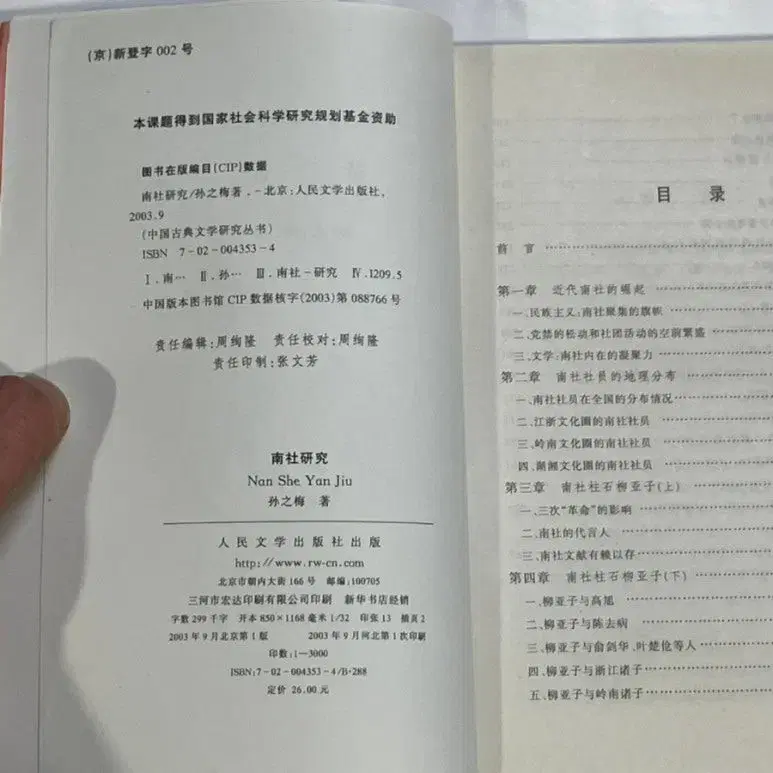 (京)新登字 002 号
本课题得到国家社会科学研究规划基金资助
图书在版编目(CIP)数据
南社研究/孙之梅著.-北京:人民文学出版社,
2003.9
(中国古典文学研究丛书)
ISBN 7-02-004353-4
Ⅰ.南… Ⅱ.孙… Ⅲ.南社-研究 Ⅳ.I209.5
中国版本图书馆 CIP 数据核字(2003)第 088766 号
责任编辑:周绚隆 责任校对:周绚隆
责任印制:张文芳
南社研究
Nan She Yan Jiu
孙之梅 著
人民文学出版社出版
http://www.rw-cn.com
北京市朝内大街 166 号 邮编:100705
三河市宏达印刷有限公司印刷 新华书店经销
字数 299 千字 开本 850×1168 毫米 1/32 印张 13 插页 2
2003 年 9 月北京第 1 版 2003 年 9 月河北第 1 次印刷
印数:1-3000
ISBN:7-02-004353-4/B·288
定价 26.00 元
目 录
前 言
第一章 近代南社的崛起
一、民族主义:南社聚集的旗帜
二、党禁的松动和社团活动的空前繁盛
三、文学:南社内在的凝聚力
第二章 南社社员的地理分布
一、南社社员在全国的分布情况
二、江浙文化圈的南社社员
三、岭南文化圈的南社社员
四、湖湘文化圈的南社社员
第三章 南社柱石柳亚子(上)
一、三次“革命”的影响
二、南社的代言人
三、南社文献有赖以存
第四章 南社柱石柳亚子(下)
一、柳亚子与高旭
二、柳亚子与陈去病
三、柳亚子与俞剑华、叶楚伧等人
四、柳亚子与浙江诸子
五、柳亚子与岭南诸子